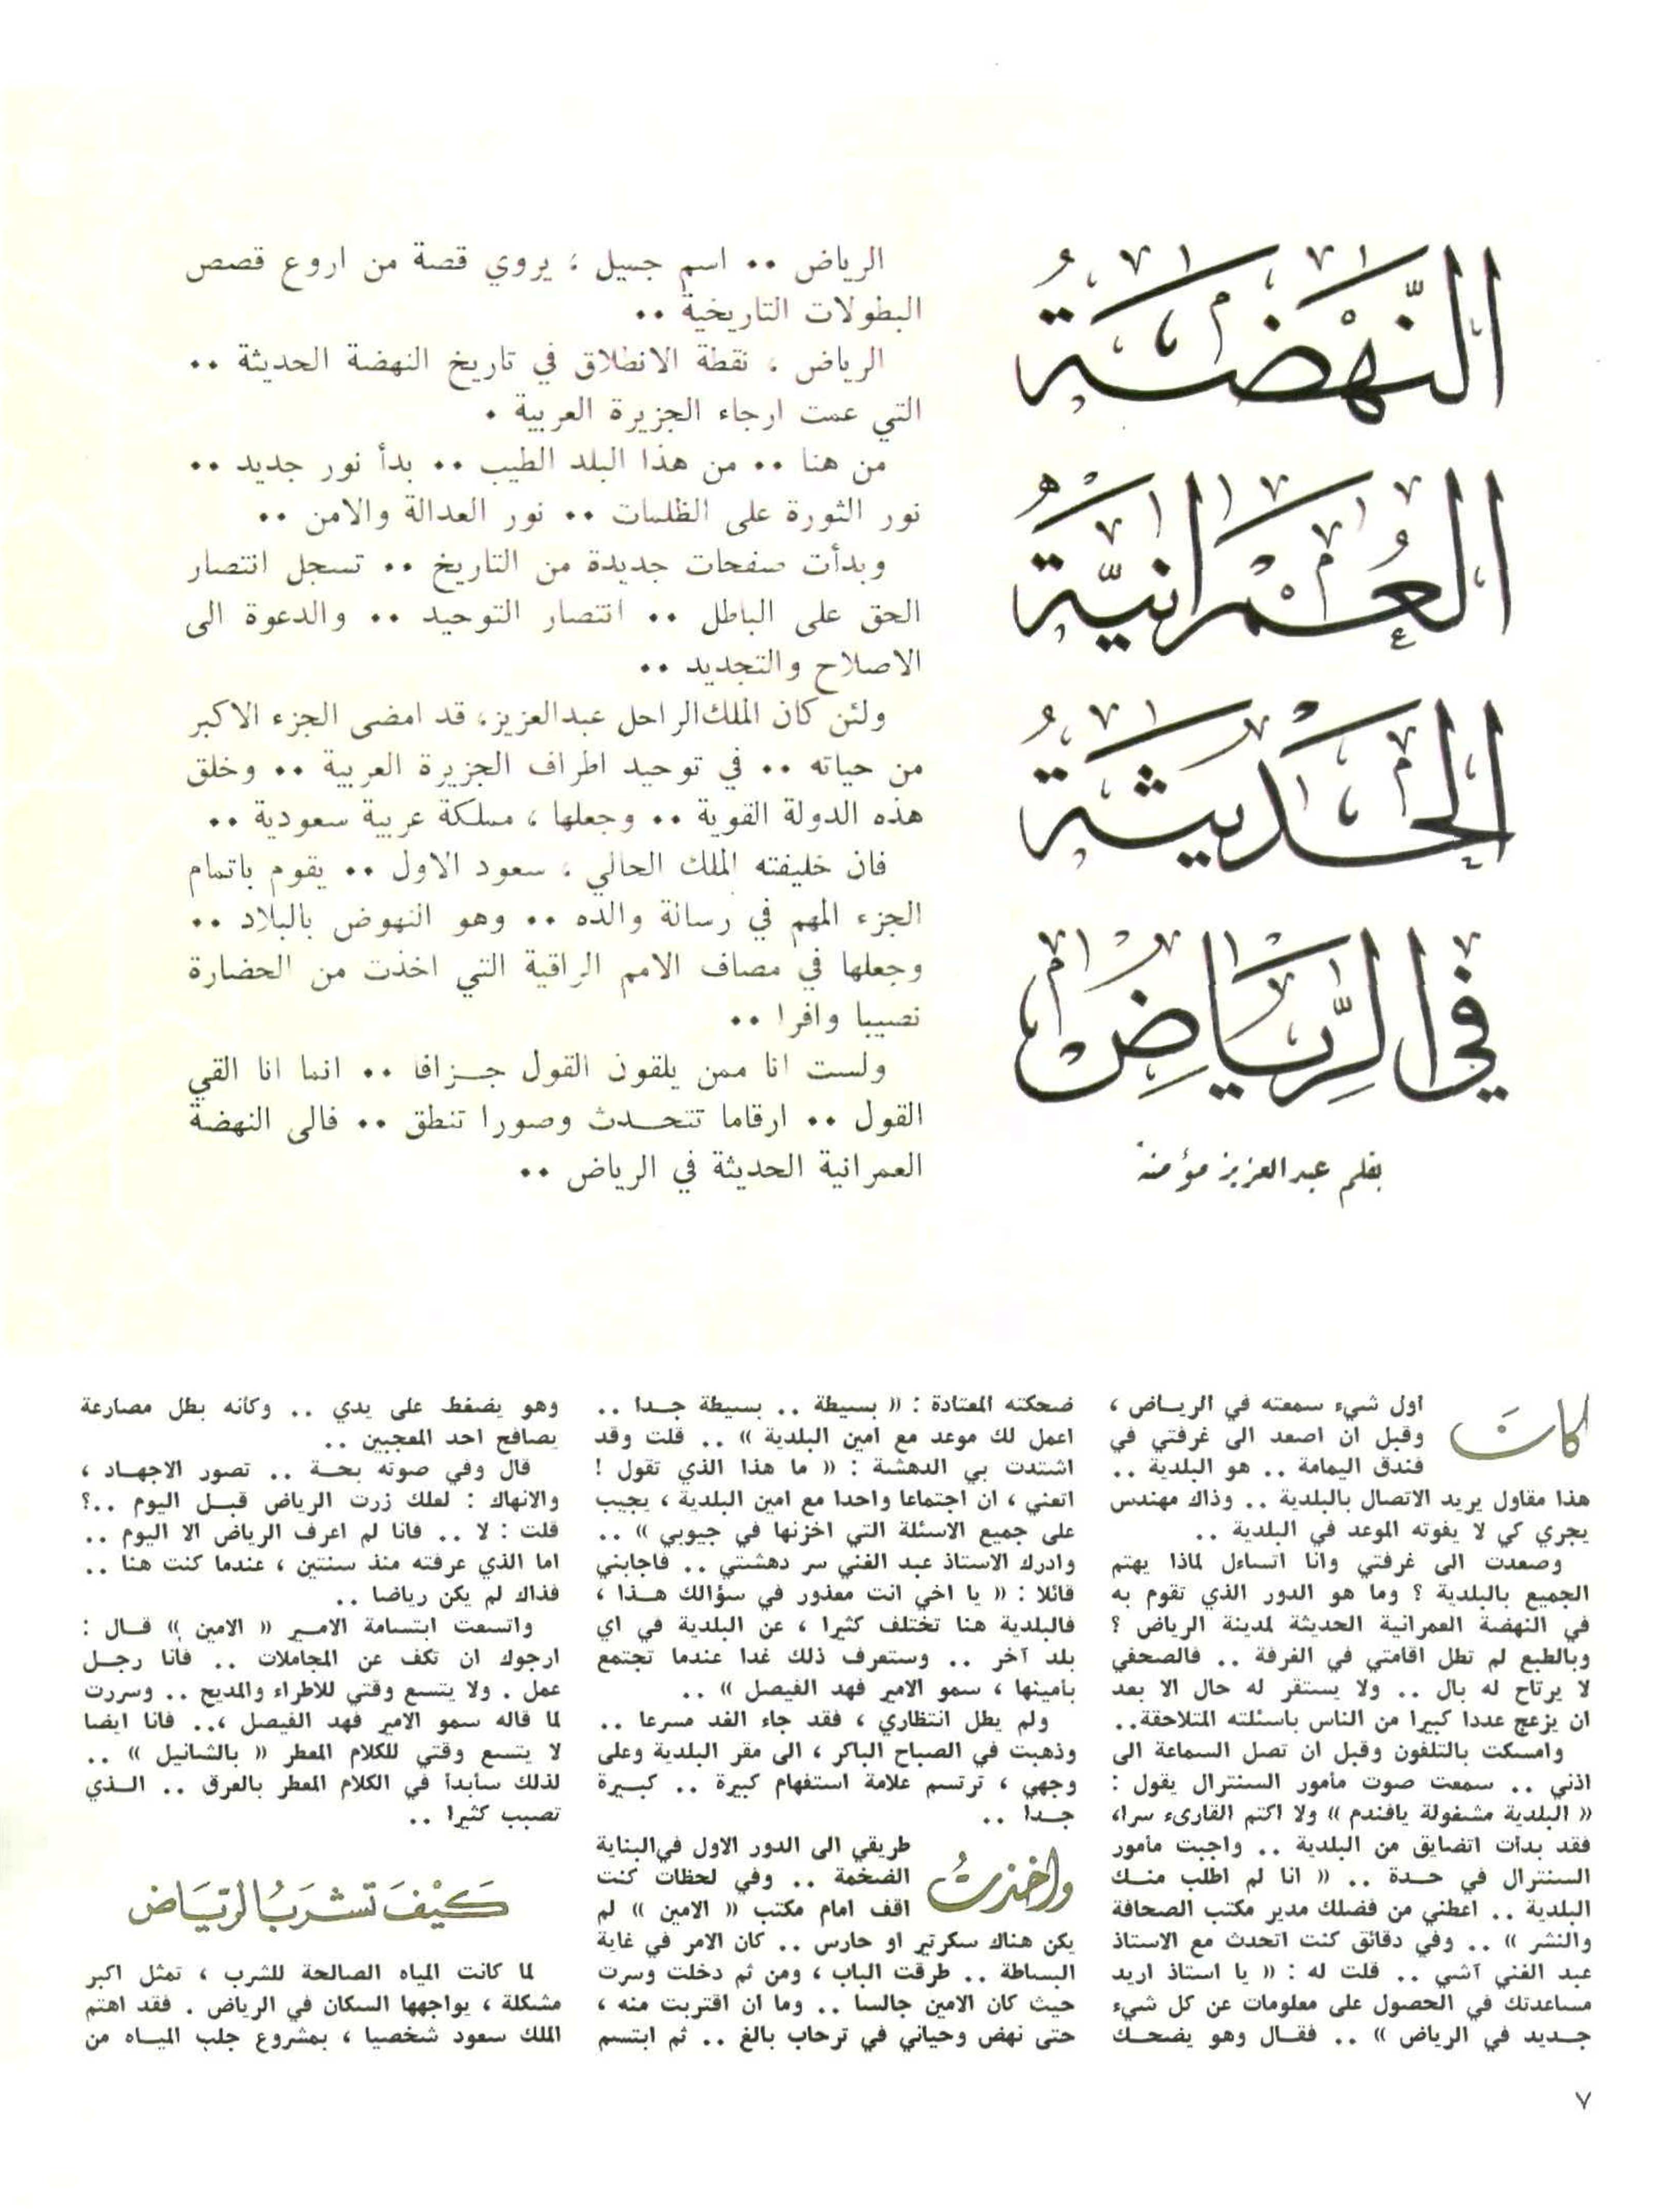 النَّهْضَةُ
العُمْرَانيَّةُ
الحَديثَةُ
في الرِّيَاضِ
بقلم عبدالعزيز مؤمنة
الرياض .. اسم جميل ، يروي قصة من اروع قصص
البطولات التاريخية ..
الرياض ، نقطة الانطلاق في تاريخ النهضة الحديثة ..
التي عمت ارجاء الجزيرة العربية .
من هنا .. من هذا البلد الطيب .. بدأ نور جديد ..
نور الثورة على الظلمات .. نور العدالة والامن ..
وبدأت صفحات جديدة من التاريخ .. تسجل انتصار
الحق على الباطل .. انتصار التوحيد .. والدعوة الى
الاصلاح والتجديد ..
ولئن كان الملك الراحل عبدالعزيز، قد امضى الجزء الاكبر
من حياته .. في توحيد اطراف الجزيرة العربية .. وخلق
هذه الدولة القوية .. وجعلها ، مملكة عربية سعودية ..
فان خليفته الملك الحالي ، سعود الاول .. يقوم باتمام
الجزء المهم في رسالة والده .. وهو النهوض بالبلاد ..
وجعلها في مصاف الامم الراقية التي اخذت من الحضارة
نصيبا وافرا ..
ولست انا ممن يلقون القول جـزافا .. انما انا القي
القول .. ارقاما تتحـدث وصورا تنطق .. فالى النهضة
العمرانية الحديثة في الرياض ..
كانَ اول شيء سمعته في الريـاض ،
وقبل ان اصعد الى غرفتي في
فندق اليمامة .. هو البلدية ..
هذا مقاول يريد الاتصال بالبلدية .. وذاك مهندس
يجري كي لا يفوته الموعد في البلدية ..
وصعدت الى غرفتي وانا اتساءل لماذا يهتم
الجميع بالبلدية ؟ وما هو الدور الذي تقوم به
في النهضة العمرانية الحديثة لمدينة الرياض ؟
وبالطبع لم تطل اقامتي في الغرفة .. فالصحفي
لا يرتاح له بال .. ولا يستقر له حال الا بعد
ان يزعج عددا كبيرا من الناس باسئلته المتلاحقة..
وامسكت بالتلفون وقبل ان تصل السماعة الى
اذني .. سمعت صوت مأمور السنترال يقول :
« البلدية مشغولة يافندم » ولا اكتم القارىء سرا،
فقد بدأت اتضايق من البلدية .. واجبت مأمور
السنترال في حـدة .. « انا لم اطلب منـك
البلدية .. اعطني من فضلك مدير مكتب الصحافة
والنشر » .. وفي دقائق كنت اتحدث مع الاستاذ
عبد الغني آشي .. قلت له : « يا استاذ اريد
مساعدتك في الحصول على معلومات عن كل شيء
جـديد في الرياض » .. فقـال وهو يضحـك
ضحكته المعتادة : « بسيطة .. بسيطة جـدا ..
اعمل لك موعد مع امين البلدية » .. قلت وقد
اشتدت بي الدهشة : « ما هذا الذي تقول !
اتعني ، ان اجتماعا واحدا مع امين البلدية ، يجيب
على جميع الاسئلة التي اخزنها في جيوبي » ..
وادرك الاستاذ عبد الغني سر دهشتي .. فاجابني
قائلا : « يا اخي انت معذور في سؤالك هـذا ،
فالبلدية هنا تختلف كثيرا ، عن البلدية في اي
بلد آخر .. وستعرف ذلك غدا عندما تجتمع
بأمينها ، سمو الامير فهد الفيصل » ..
ولم يطل انتظاري ، فقد جاء الغد مسرعا ..
وذهبت في الصباح الباكر ، الى مقر البلدية وعلى
وجهي ، ترتسم علامة استفهام كبيرة .. كبـيرة
جـدا ..
واخذتُ طريقي الى الدور الاول في البناية
الضخمة .. وفي لحظات كنت
اقف امام مكتب « الامين » لم
يكن هناك سكرتير او حارس .. كان الامر في غاية
البساطة .. طرقت الباب ، ومن ثم دخلت وسرت
حيث كان الامين جالسا .. وما ان اقتربت منه ،
حتى نهض وحياني في ترحاب بالغ .. ثم ابتسم
وهو يضغط على يدي .. وكأنه بطل مصارعة
يصافح احد المعجبين ..
قال وفي صوته بحـة .. تصور الاجهـاد ،
والانهاك : لعلك زرت الرياض قبـل اليوم ..؟
قلت : لا .. فانا لم اعرف الرياض الا اليوم ..
اما الذي عرفته منذ سنتين ، عندما كنت هنا ..
فذاك لم يكن رياضا ..
واتسعت ابتسامة الامـير « الامين » قـال :
ارجوك ان تكف عن المجاملات .. فأنا رجـل
عمل . ولا يتسع وقتي للاطراء والمديح .. وسررت
لما قاله سمو الامير فهد الفيصل ،.. فانا ايضا
لا يتسع وقتي للكلام المعطر « بالشانيل » ..
لذلك سأبدأ في الكلام المعطر بالعرق .. الـذي
تصبب كثيرا ..
كَيْفَ تَشْرَبُ الرِّيَاض
لما كانت المياه الصالحة للشرب ، تمثل اكبر
مشكلة ، يواجهها السكان في الرياض . فقد اهتم
الملك سعود شخصيا ، بمشروع جلب الميـاه من
٧